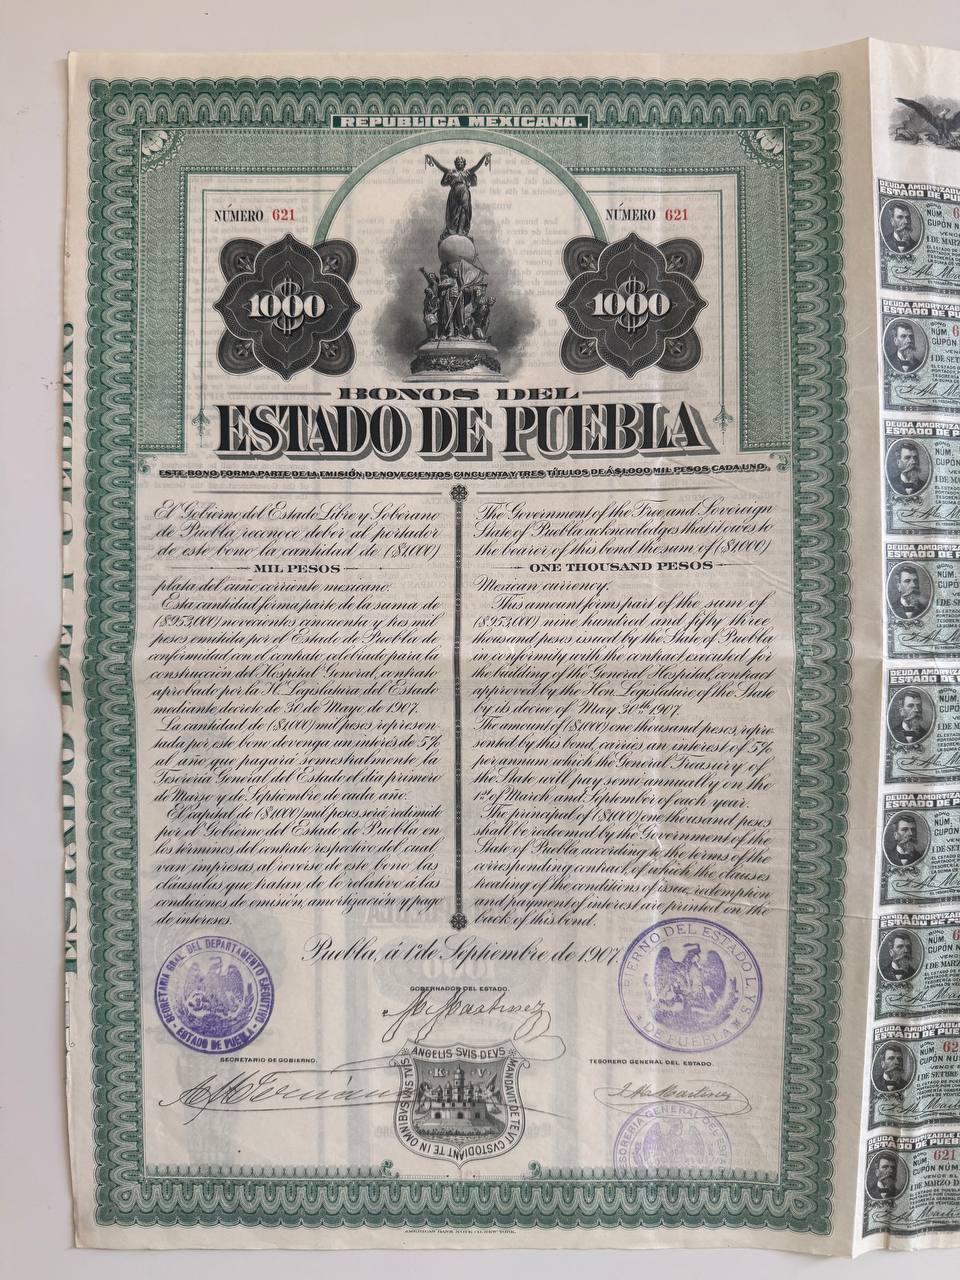 REPUBLICA MEXICANA.
NÚMERO 621
NÚMERO 621
1000
1000
BONOS DEL
ESTADO DE PUEBLA
ESTE BONO FORMA PARTE DE LA EMISIÓN DE NOVECIENTOS CINCUENTA Y TRES TÍTULOS DE Á $1,000 MIL PESOS CADA UNO.
El Gobierno del Estado Libre y Soberano
de Puebla reconoce deber al portador
de este bono la cantidad de ($1,000)
MIL PESOS
plata del cuño corriente mexicano.
Esta cantidad forma parte de la suma de
($953,000) novecientos cincuenta y tres mil
pesos emitida por el Estado de Puebla de
conformidad con el contrato celebrado para la
construcción del Hospital General, contrato
aprobado por la H. Legislatura del Estado
mediante decreto de 30 de Mayo de 1907.
La cantidad de ($1,000) mil pesos represen-
tada por este bono devenga un interés de 5%
al año que pagará semestralmente la
Tesorería General del Estado el día primero
de Marzo y de Septiembre de cada año.
El capital de ($1,000) mil pesos será redimido
por el Gobierno del Estado de Puebla en
los términos del contrato respectivo del cual
van impresas al reverso de este bono las
cláusulas que tratan de lo relativo á las
condiciones de emisión, amortización y pago
de intereses.
The Government of the Free and Sovereign
State of Puebla acknowledges that it owes to
the bearer of this bond the sum of ($1,000)
ONE THOUSAND PESOS
Mexican currency.
This amount forms part of the sum of
($953,000) nine hundred and fifty three
thousand pesos issued by the State of Puebla
in conformity with the contract executed for
the building of the General Hospital, contract
approved by the Hon. Legislature of the State
by its decree of May 30th 1907.
The amount of ($1,000) one thousand pesos, repre-
sented by this bond, carries an interest of 5%
per annum which the General Treasury of
the State will pay semi-annually on the
1st of March and September of each year.
The principal of ($1,000) one thousand pesos
shall be redeemed by the Government of the
State of Puebla according to the terms of the
corresponding contract, of which the clauses
treating of the conditions of issue, redemption
and payment of interest are printed on the
back of this bond.
Puebla, á 1º de Septiembre de 1907.
SECRETARIA GRAL. DEL DEPARTAMENTO EJECUTIVO
ESTADO DE PUEBLA
GOBIERNO DEL ESTADO L. Y S.
DE PUEBLA
GOBERNADOR DEL ESTADO.
SECRETARIO DE GOBIERNO.
TESORERO GENERAL DEL ESTADO.
ANGELIS SVIS DEVS MANDAVIT DE TE VT CVSTODIANT TE IN OMNIBVS VIIS TVIS
K V
TESORERIA GENERAL DEL ESTADO
AMERICAN BANK NOTE CO. NEW YORK.
DEUDA AMORTIZABLE
ESTADO DE PU
BONO
NÚM. 621
CUPÓN NÚM.
1 DE MARZO D